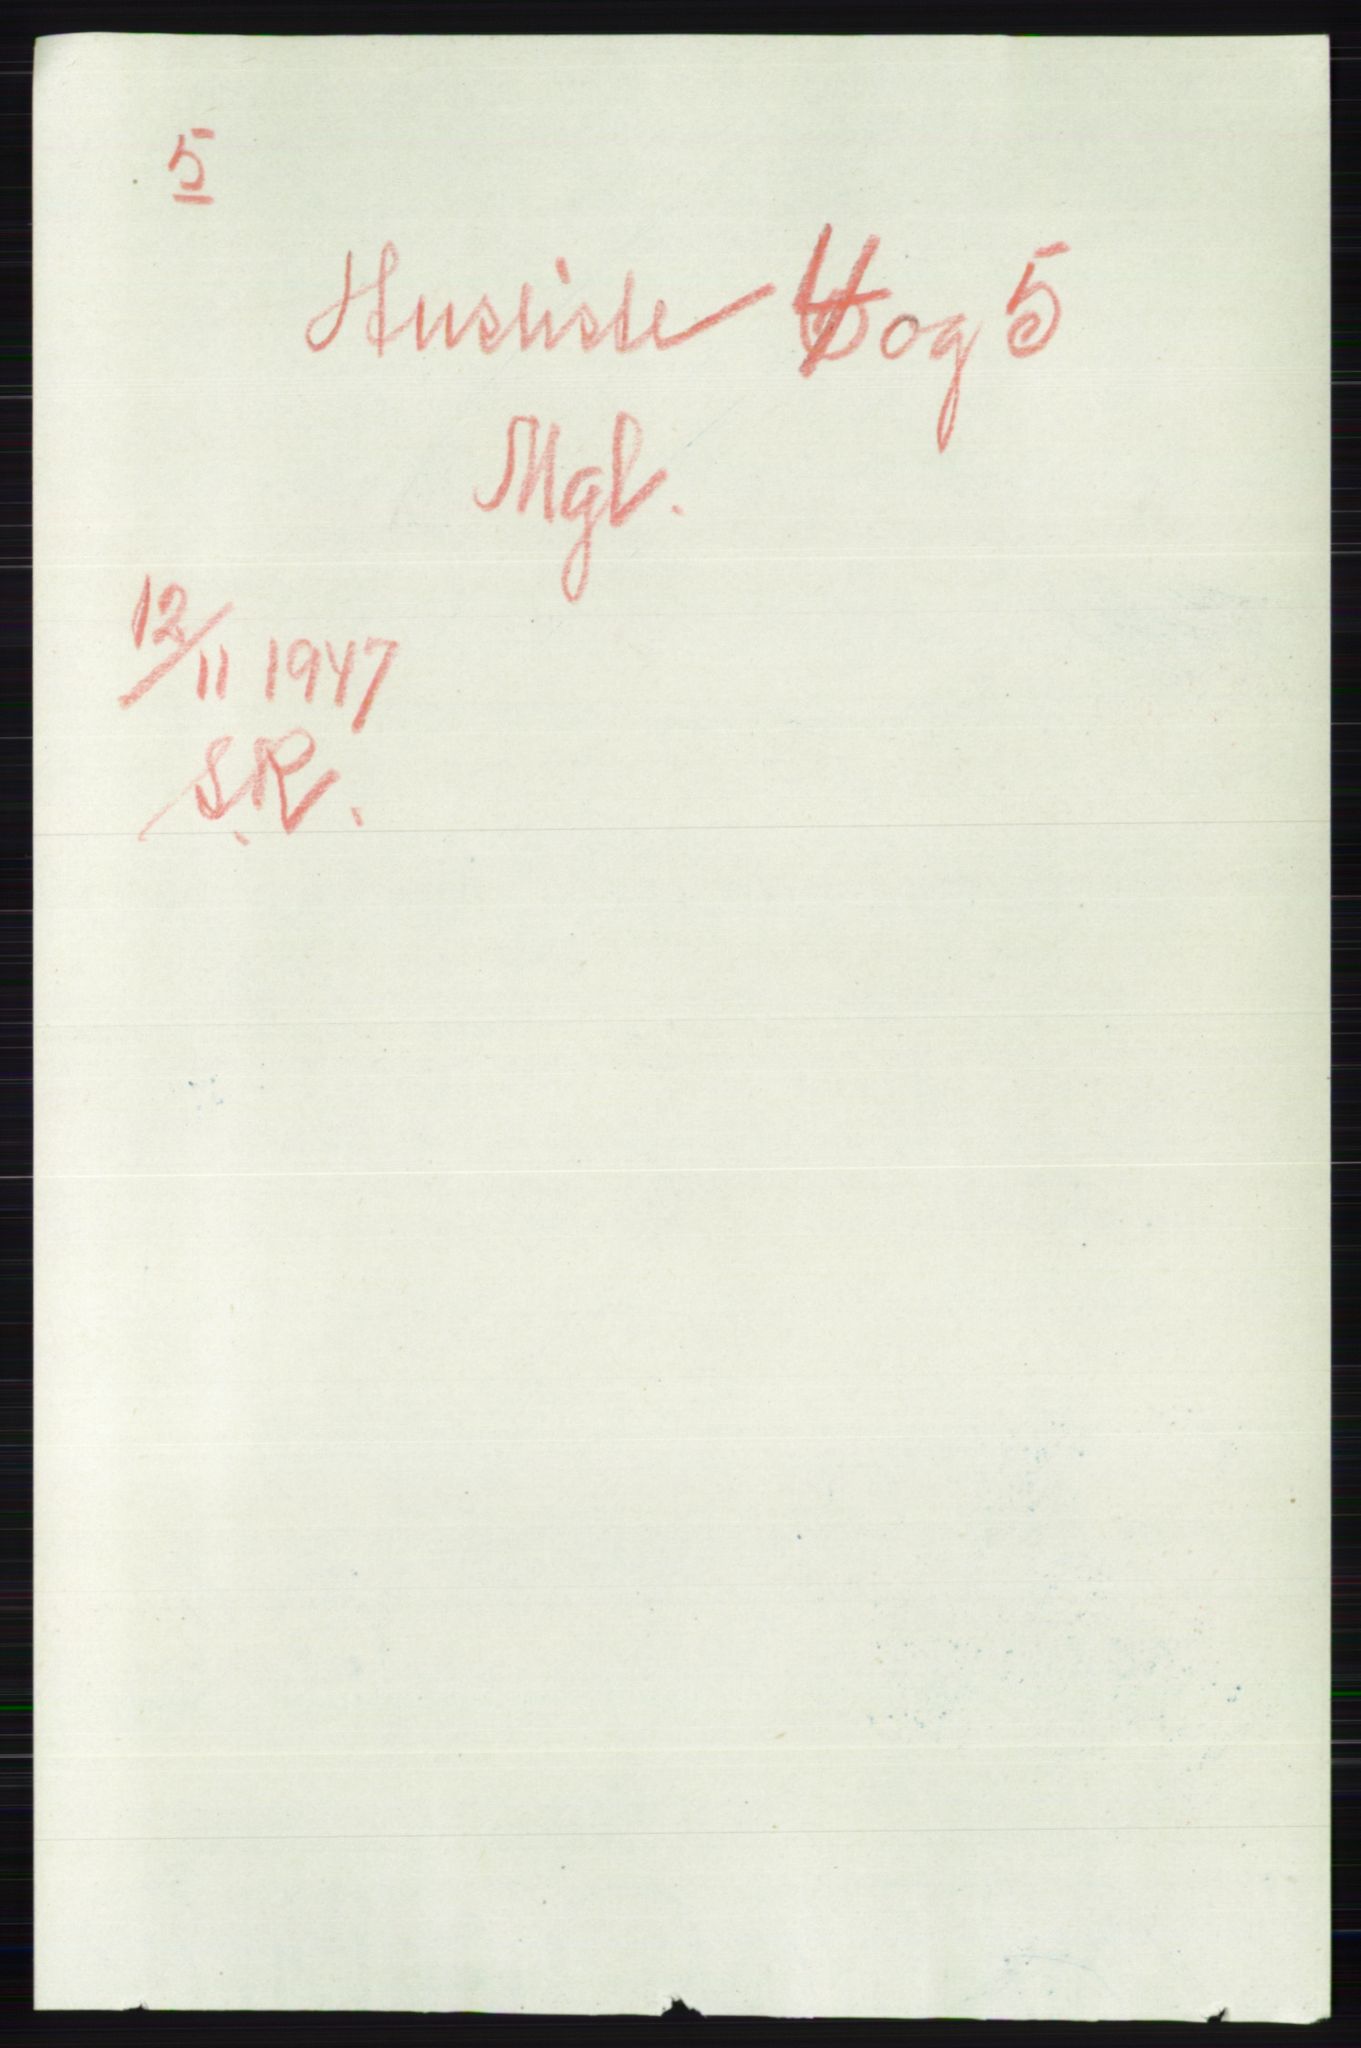 5
Husliste 4 og 5
Mgl.
12/11 1947
S.R.